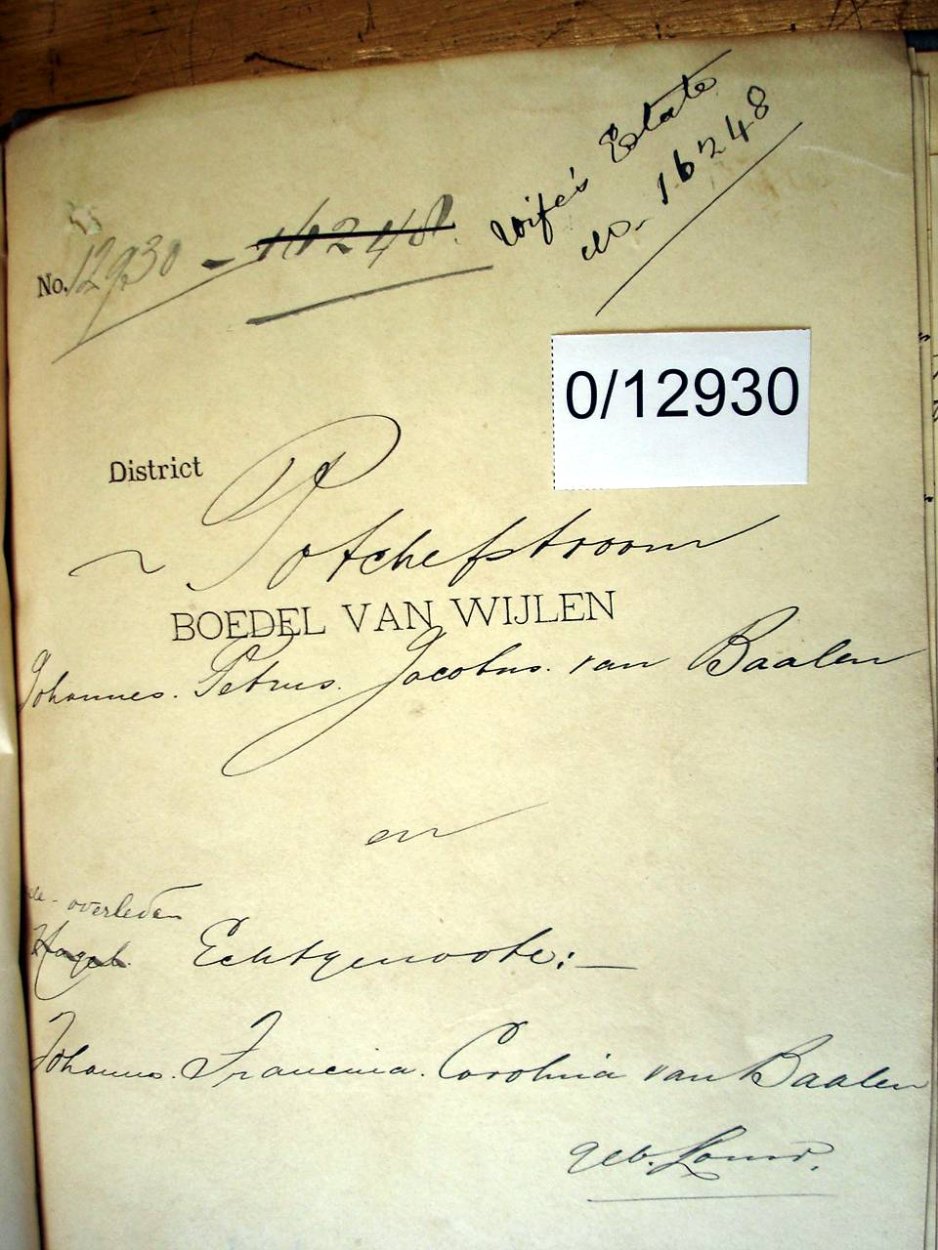 Wife's Estate
No. 16248
No. 12930 - 16248.
0/12930
District
Potchefstroom
BOEDEL VAN WIJLEN
Johannes. Petrus. Jacobus. van Baalen
en
overleden
Echtgenoote:—
Francina. Carolina van Baalen
geb.